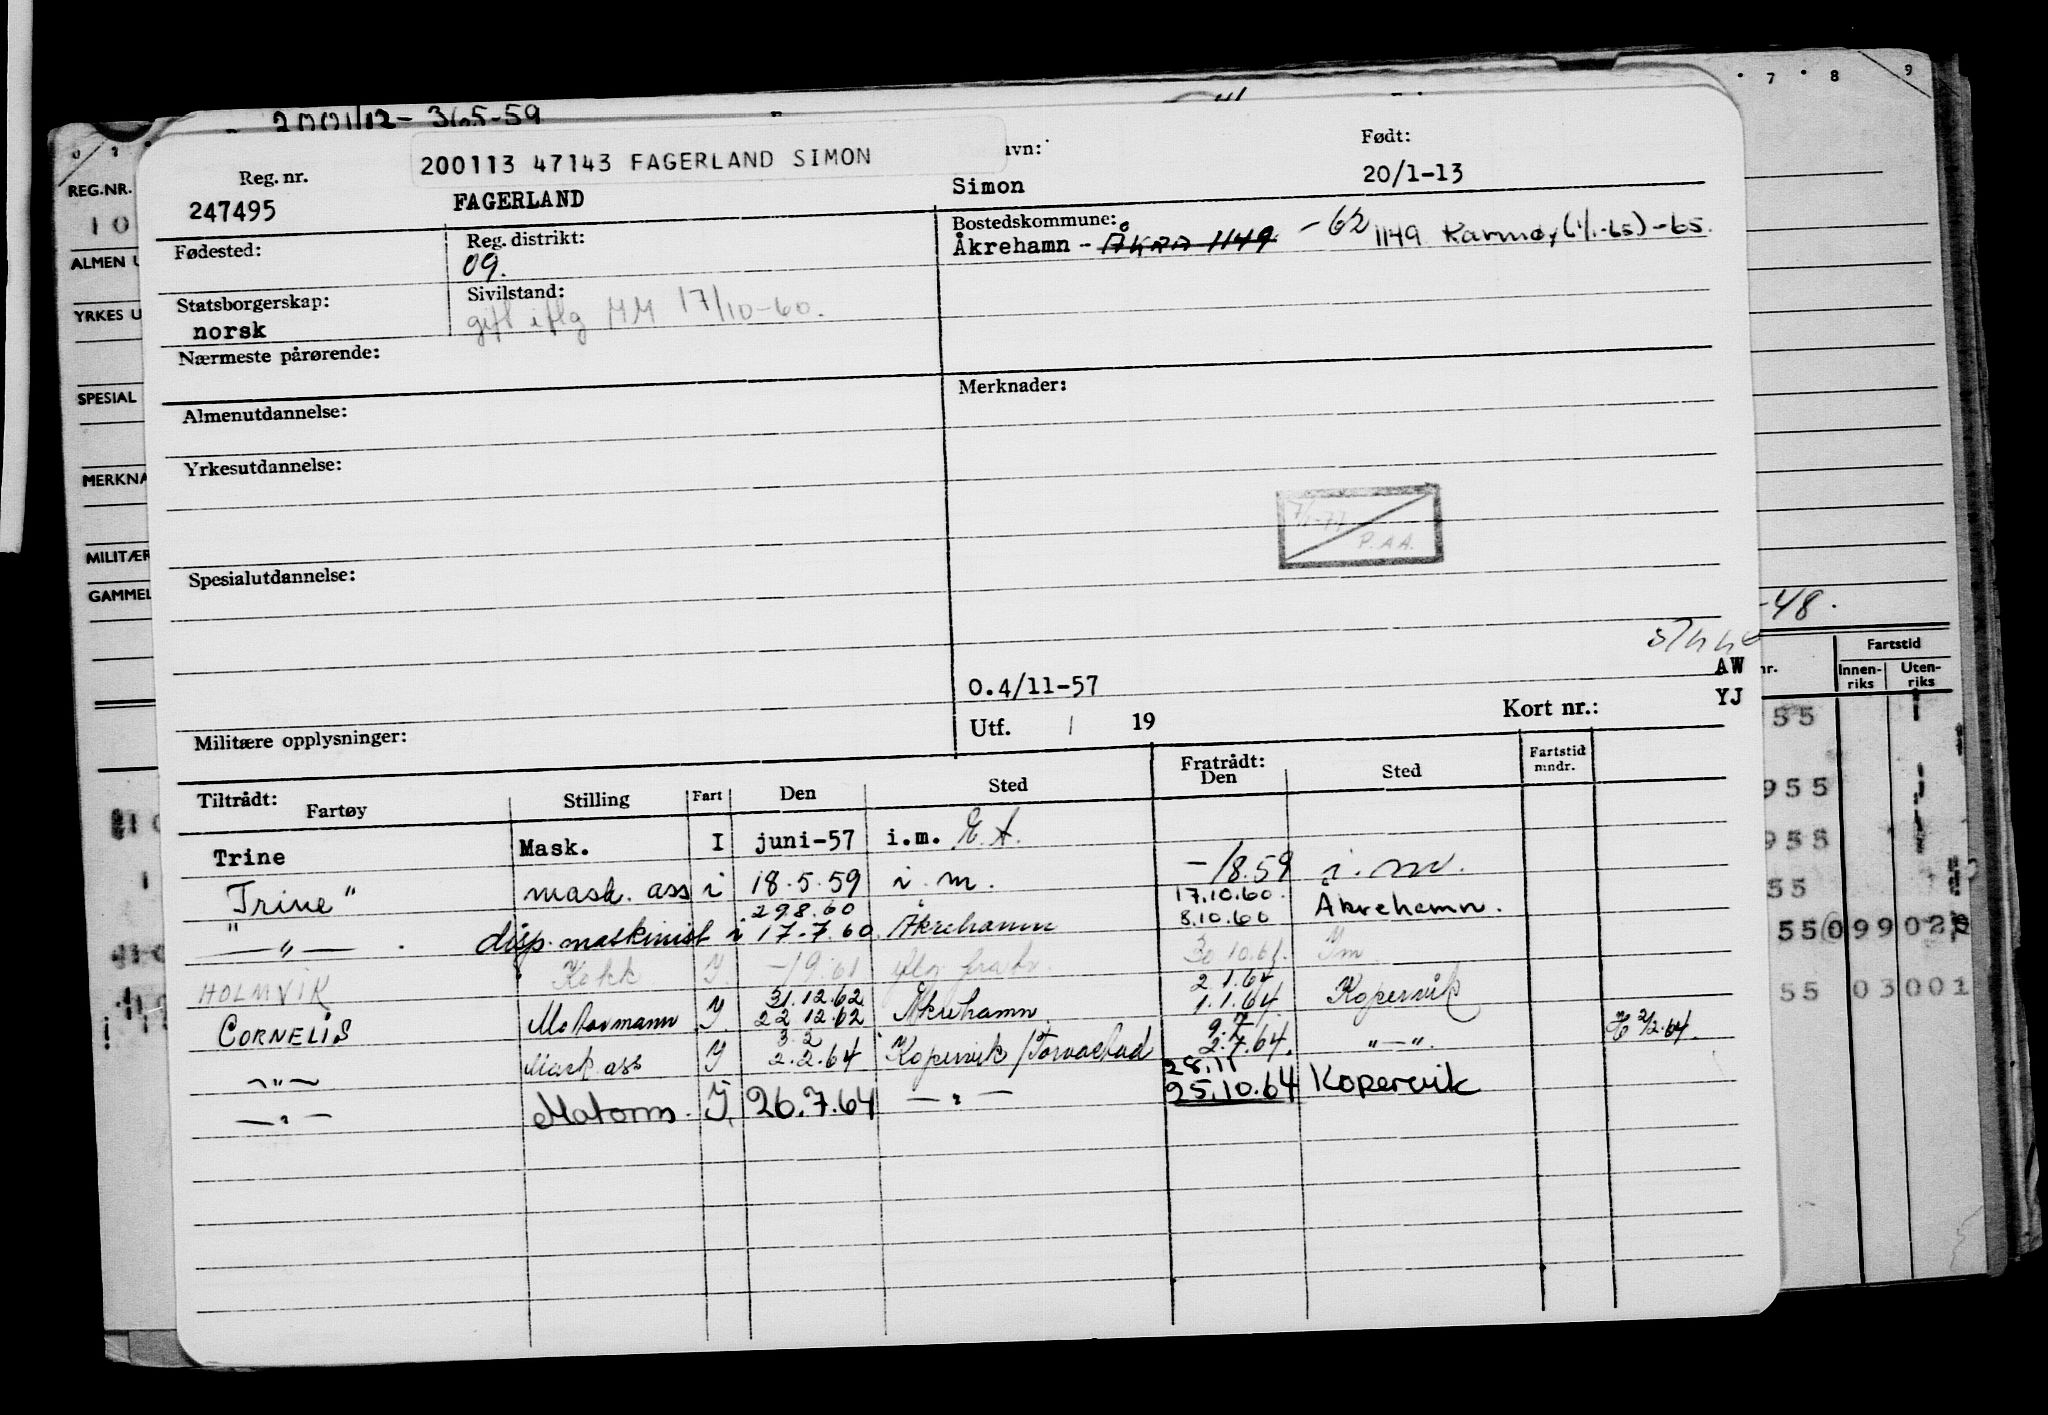 2001/12- 365-59
7 8 9
200113 47143 FAGERLAND SIMON
avn: Født:
Reg. nr.
REG.NR.
247495 FAGERLAND Simon 20/1-13
10
Fødested: Reg. distrikt: Bostedskommune:
09. Åkrehamn - Åkra 1149 -62 1149 Karmøy (1/1-65) -65.
ALMEN U
Statsborgerskap: Sivilstand:
norsk gift iflg MM 17/10-60.
YRKES U
Nærmeste pårørende:
SPESIAL
Almenutdannelse: Merknader:
Yrkesutdannelse:
MERKNA
7/1-77 P.AA.
MILITÆR
Spesialutdannelse:
GAMMEL
-48.
Fartstid
AW
nr. Innen-riks Uten-riks
O.4/11-57
YJ
Utf. / 19 Kort nr.:
55
Militære opplysninger:
Tiltrådt: Fratrådt:
Fartøy Stilling Fart Den Sted Den Sted Fartstid mndr.
955
Trine Mask. I juni-57 i.m. E.A.
955
Trine" mask. ass i 18.5.59 i.m. -/8.59 i.m.
55
29.8.60 17.10.60.
" — " — . disp. maskinist i 17.7.60. Åkrehamn 8.10.60 Åkrehamn.
55 099 02
HOLMVIK Kokk Y -/9.61 iflg fratr. 30.10.61. Im
31.12.62 2.1.64
CORNELIS Motormann Y 22.12.62 Åkrehamn 1.1.64 Kopervik
55 03001
3.2 9.7
— " — Mask ass Y 2.2.64 Kopervik/Torvastad 2.7.64. " — ". H 2/2.64.
28.11
— " — Motorm. I. 26.7.64 — " — 25.10.64 Kopervik